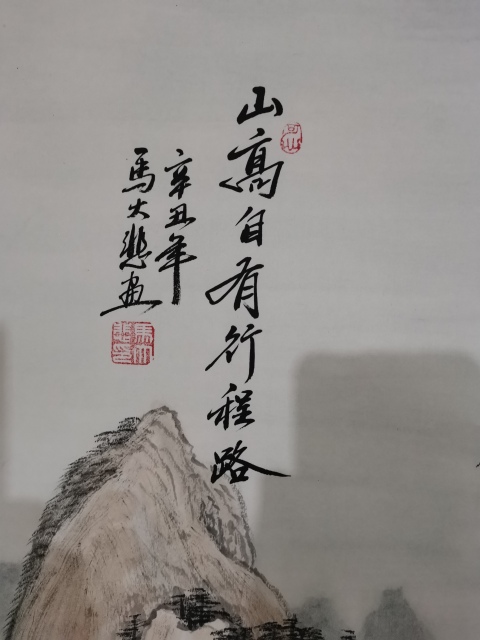 山高自有行程路
辛丑年
馬大悲畫